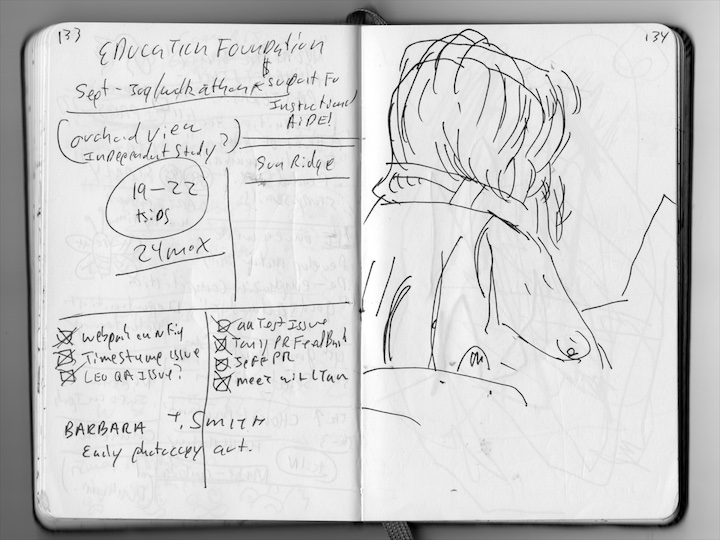 133
EDUCATION FOUNDATION
Sept - Jog/walkathon $ support For
Instructional
AiDE!
(orchard View
InDependent Study?)
Sun Ridge
19-22
kids
24 max
webpart config
Timestump issue
LEO QA ISSUE?
aa Test Issue
Tony PR Feedback
Jeff PR
meet with
BARBARA T. SMITH
Early photocopy art.
134